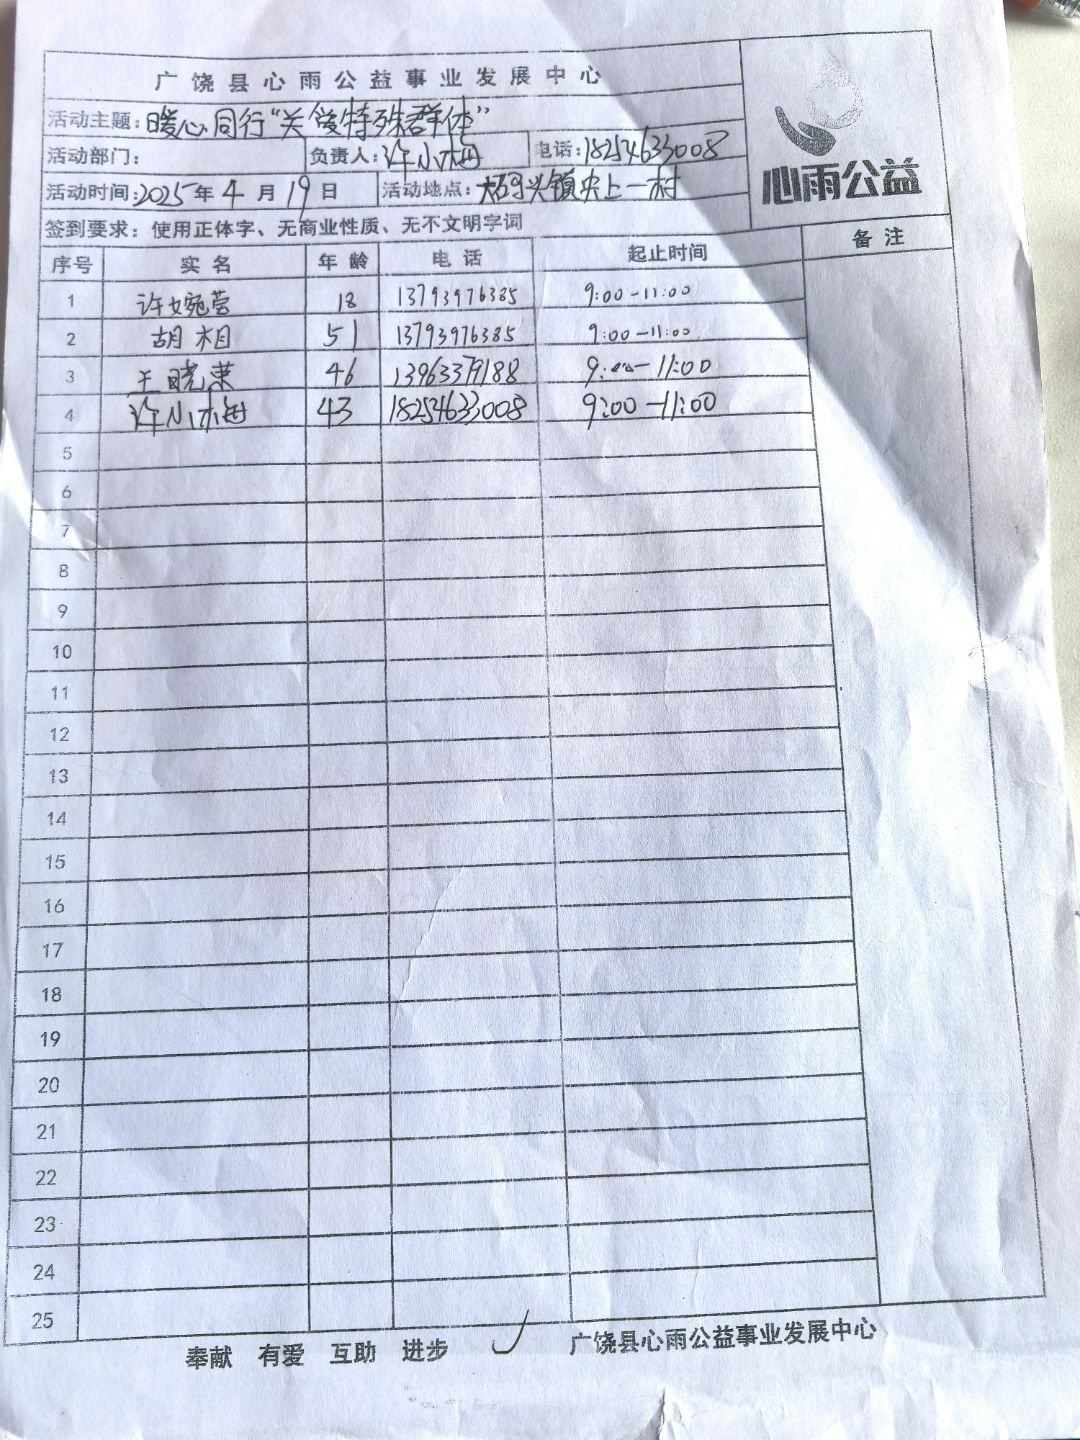 广饶县心雨公益事业发展中心
心雨公益
活动主题：暖心同行“关爱特殊群体”
活动部门： 负责人：许小梅 电话：18254633008
活动时间：2025年4月19日 活动地点：大码头镇央上一村
签到要求：使用正体字、无商业性质、无不文明字词 备注
序号 实名 年龄 电话 起止时间
1 许婉莹 18 13793976385 9:00-11:00
2 胡相 51 13793976385 9:00-11:00
3 王晓荣 46 13963379188 9:00-11:00
4 许小梅 43 18254633008 9:00-11:00
5
6
7
8
9
10
11
12
13
14
15
16
17
18
19
20
21
22
23
24
25
奉献 有爱 互助 进步 广饶县心雨公益事业发展中心